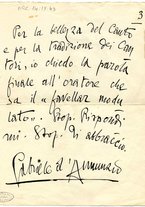 3
Per la bellezza del Canto
e per la tradizione dei Can
tori, io chiedo la parola
finale all'oratore che
sa il "favellar modu
lato". Prop. Rispondi
mi. Prop. Ti abbraccio
Gabriele d'Annunzio